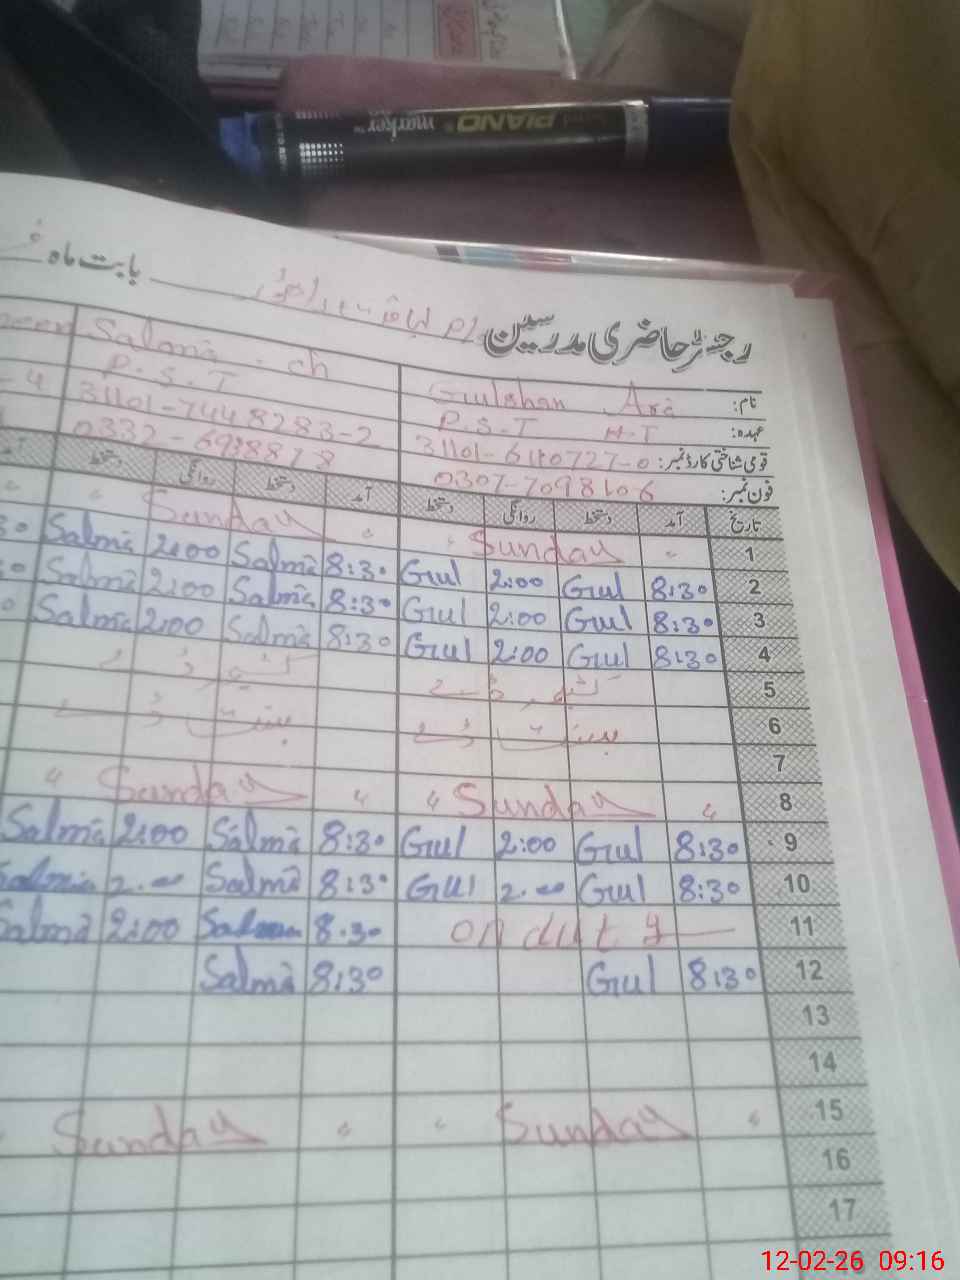 PIANO marker
بابت ماہ
رجسٹر حاضری مدرسین
نام: Gulshan Ara Salma ch
عہدہ: P.S.T H.T P.S.T
قومی شناختی کارڈ نمبر: 31101-6110727-0 31101-7448283-2
فون نمبر: 0307-7098106 0332-6988878
تاریخ آمد دستخط روانگی دستخط آمد دستخط روانگی دستخط
1 " Sunday " " Sunday "
2 8:30 Gul 2:00 Gul 8:30 Salma 2:00 Salma
3 8:30 Gul 2:00 Gul 8:30 Salma 2:00 Salma
4 8:30 Gul 2:00 Gul 8:30 Salma 2:00 Salma
5 کشمیر ڈے کشمیر ڈے
6 بسنت ڈے بسنت ڈے
7
8 " Sunday " " Sunday "
9 8:30 Gul 2:00 Gul 8:30 Salma 2:00 Salma
10 8:30 Gul 2:00 Gul 8:30 Salma 2:00 Salma
11 on duty 8:30 Salma 2:00 Salma
12 8:30 Gul 8:30 Salma
13
14
15 " Sunday " " Sunday
16
17
12-02-26 09:16